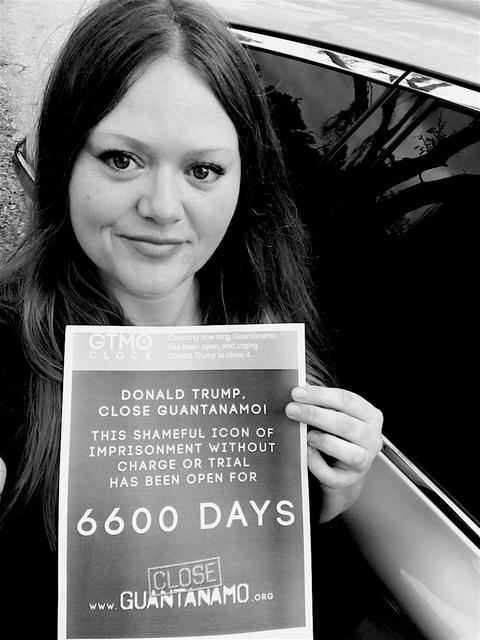 GTMO
CLOCK
Counting how long Guantánamo
has been open, and urging
Donald Trump to close it.
DONALD TRUMP,
CLOSE GUANTANAMO!
THIS SHAMEFUL ICON OF
IMPRISONMENT WITHOUT
CHARGE OR TRIAL
HAS BEEN OPEN FOR
6600 DAYS
CLOSE
WWW.GUANTANAMO.ORG